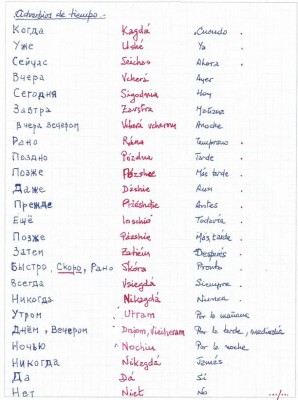 Adverbios de tiempo.-
Когда Kagdá Cuando .
Уже Ushé Ya .
Сейчас Seichas Ahora .
Вчера Vcherá Ayer
Сегодня Sigodnia Hoy
Завтра Závtra Mañana
Вчера вечером Vcherá vcherom Anoche
Рано Rána Temprano .
Поздно Pózdna Tarde .
Позже Pózshee Más tarde .
Даже Dáshie Aun .
Прежде Antes .
Ещё Todavía .
Позже Pózshie Más tarde .
Затем Zatiém Después .
Быстро, Скоро, Рано Skóra Pronto .
Всегда Vsiegdá Siempre .
Никогда Nikagdá Nunca .
Утром Utram Por la mañana
Днём, Вечером Dniom, Viecheram Por la tarde, mediodía
Ночью Nochiu Por la noche
Никогда Nikagdá Jamás
Да Dá Sí
Нет Niet No
.../...